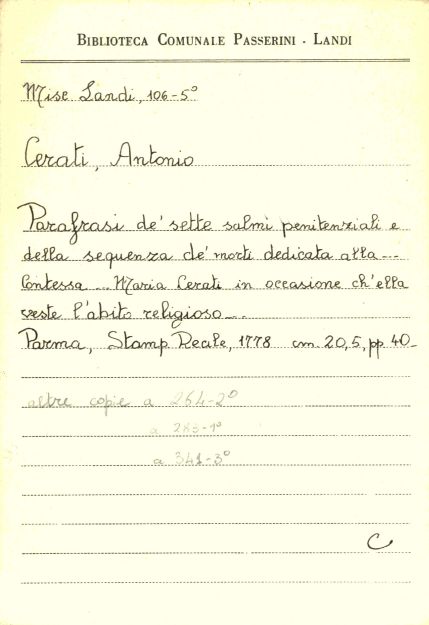 BIBLIOTECA COMUNALE PASSERINI - LANDI
Misc Landi, 106-5º
Cerati, Antonio
Parafrasi de' sette salmi penitenziali e
della sequenza de' morti dedicata alla...
Contessa... Maria Cerati in occasione ch'ella
veste l'abito religioso...
Parma, Stamp. Reale, 1778 cm. 20,5, pp. 40-
altre copie a 264-2º
a 283-1º
a 341-3º
C